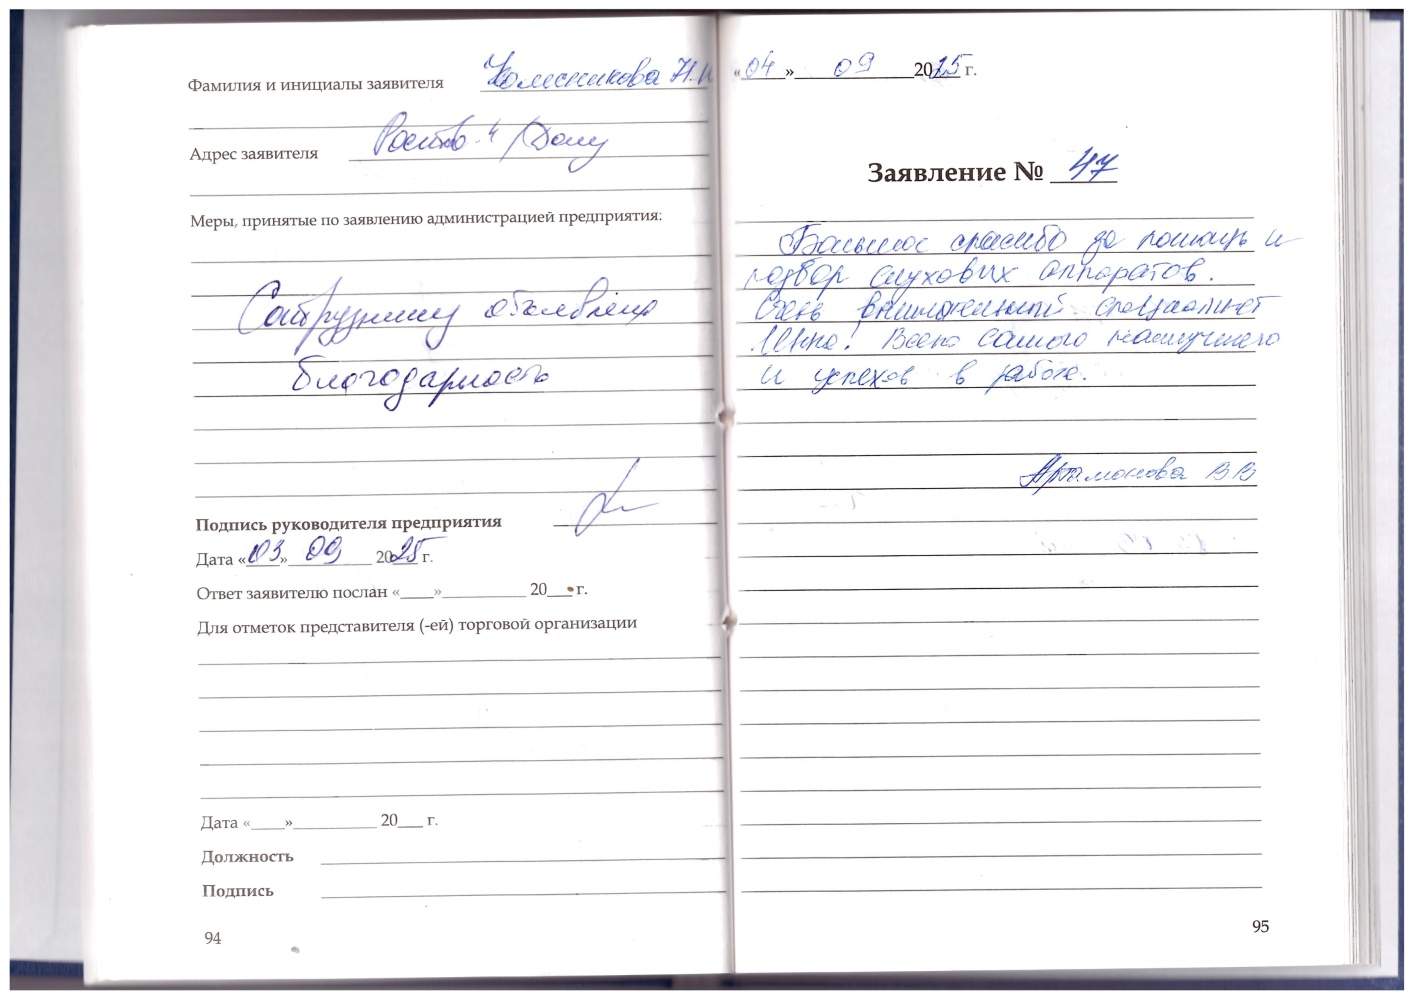 Фамилия и инициалы заявителя Колесникова Н.И
Адрес заявителя Ростов-н/Дону
Меры, принятые по заявлению администрацией предприятия:
Сотруднику объявлена
благодарность
Подпись руководителя предприятия
Дата «03» 09 2025 г.
Ответ заявителю послан «____»__________ 20___ г.
Для отметок представителя (-ей) торговой организации
Дата «____»__________ 20___ г.
Должность
Подпись
94
«04» 09 2025 г.
Заявление № 47
Большое спасибо за помощь и
подбор слуховых аппаратов.
Очень внимательный специалист
Всего самого наилучшего
и успехов в работе.
Артамонова В.В
95